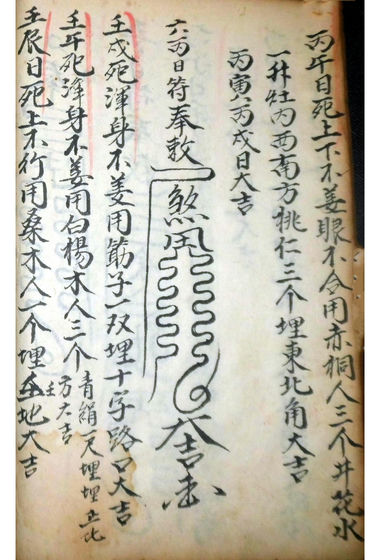 丙午日死上下不姜眼不合用赤桐人三个井花水
一升灶内西南方桃仁三个埋東北角大吉
丙寅 丙戍日大吉
六丙日符奉敕
煞
大吉
壬戍死渾身不姜用筯子一双埋十字路口大吉
壬午死渾身不姜用白楊木人三个青絹一尺埋埋正北
方大吉
壬辰日死上不行用桑木人一个埋 地大吉